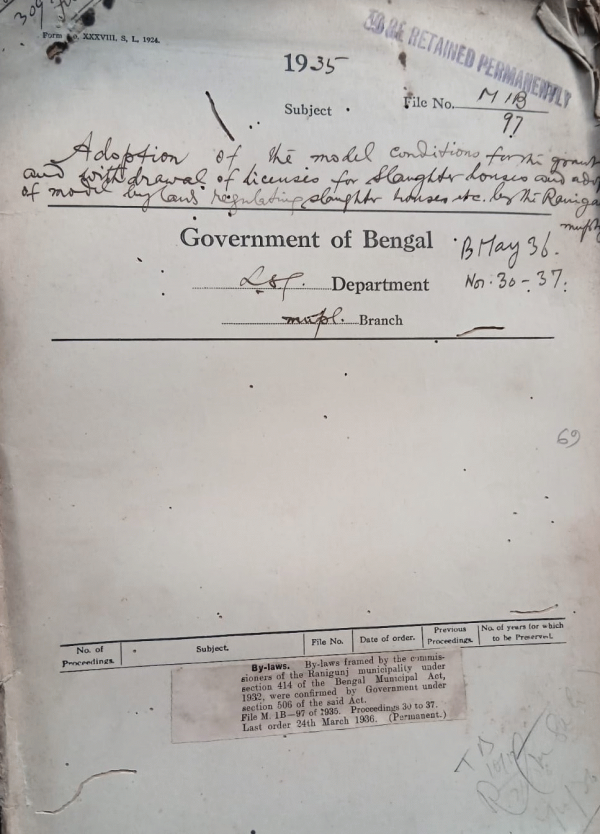 Form No. XXXVIII, S, L, 1924.
TO BE RETAINED PERMANENTLY
1935
Subject
File No. M 1B
97
Adoption of the model conditions for the grant
and withdrawal of licenses for slaughter houses and adop
of model by laws regulating slaughter houses etc. by the Raniga
Government of Bengal
B May 36.
Department
Nos. 30-37.
Branch
69
No. of Proceedings.
Subject.
File No.
Date of order.
Previous Proceedings.
No. of years for which to be Preserved.
By-laws. By-laws framed by the commis-
sioners of the Ranigunj municipality under
section 414 of the Bengal Municipal Act,
1932, were confirmed by Government under
section 506 of the said Act.
File M. 1B—97 of 1935. Proceedings 30 to 37.
Last order 24th March 1936. (Permanent.)